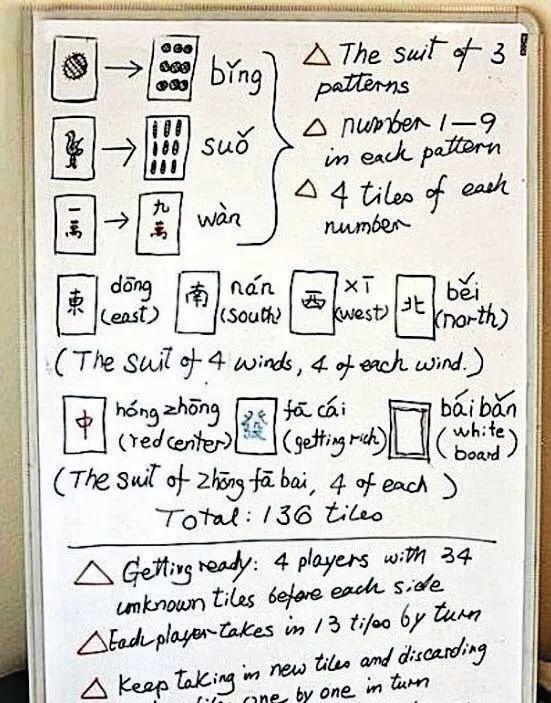 bǐng
suǒ
一萬 九萬 wàn
△ The suit of 3
patterns
△ number 1—9
in each pattern
△ 4 tiles of each
number
東 dōng (east) 南 nán (south) 西 xī (west) 北 běi (north)
(The suit of 4 winds, 4 of each wind.)
中 hóng zhōng (red center) 發 fā cái (getting rich) bái bǎn (white board)
(The suit of zhōng fā bai, 4 of each)
Total: 136 tiles
△ Getting ready: 4 players with 34
unknown tiles before each side
△ Each player takes in 13 tiles by turn
△ Keep taking in new tiles and discarding
tiles one by one in turn